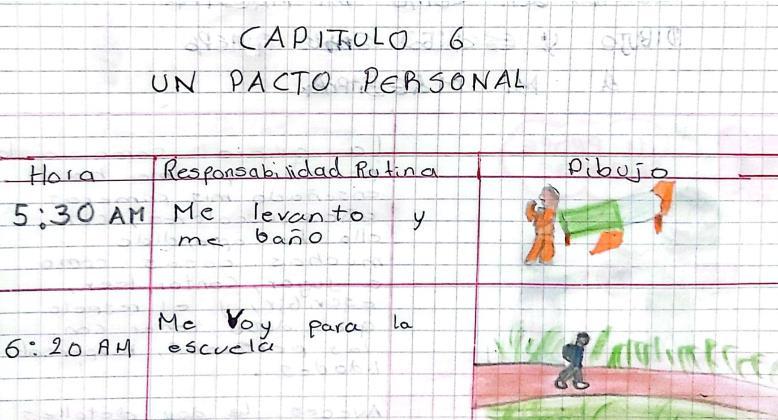 CAPITULO 6
UN PACTO PERSONAL
Hora Responsabilidad Rutina Dibujo
5:30 AM Me levanto y
me baño
6:20 AM Me Voy para la
escuela